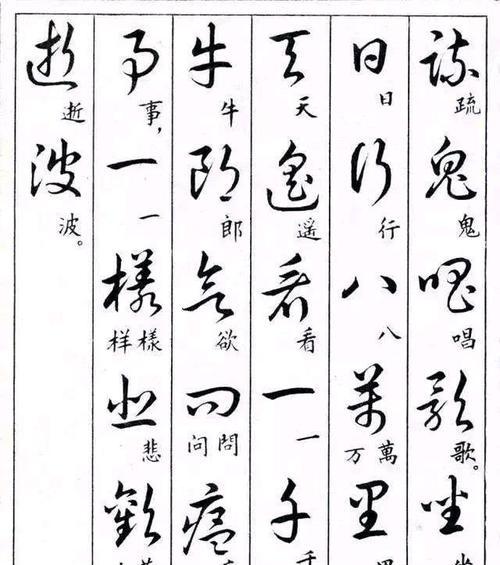 疏鬼唱歌坐
疏鬼唱歌。坐
日行八萬里
日行八万萬里
天遥看一千
天遥看一千
牛郎欲問瘟
牛郎欲问問
事一樣悲歡
事,一样樣悲
逝波
逝波。